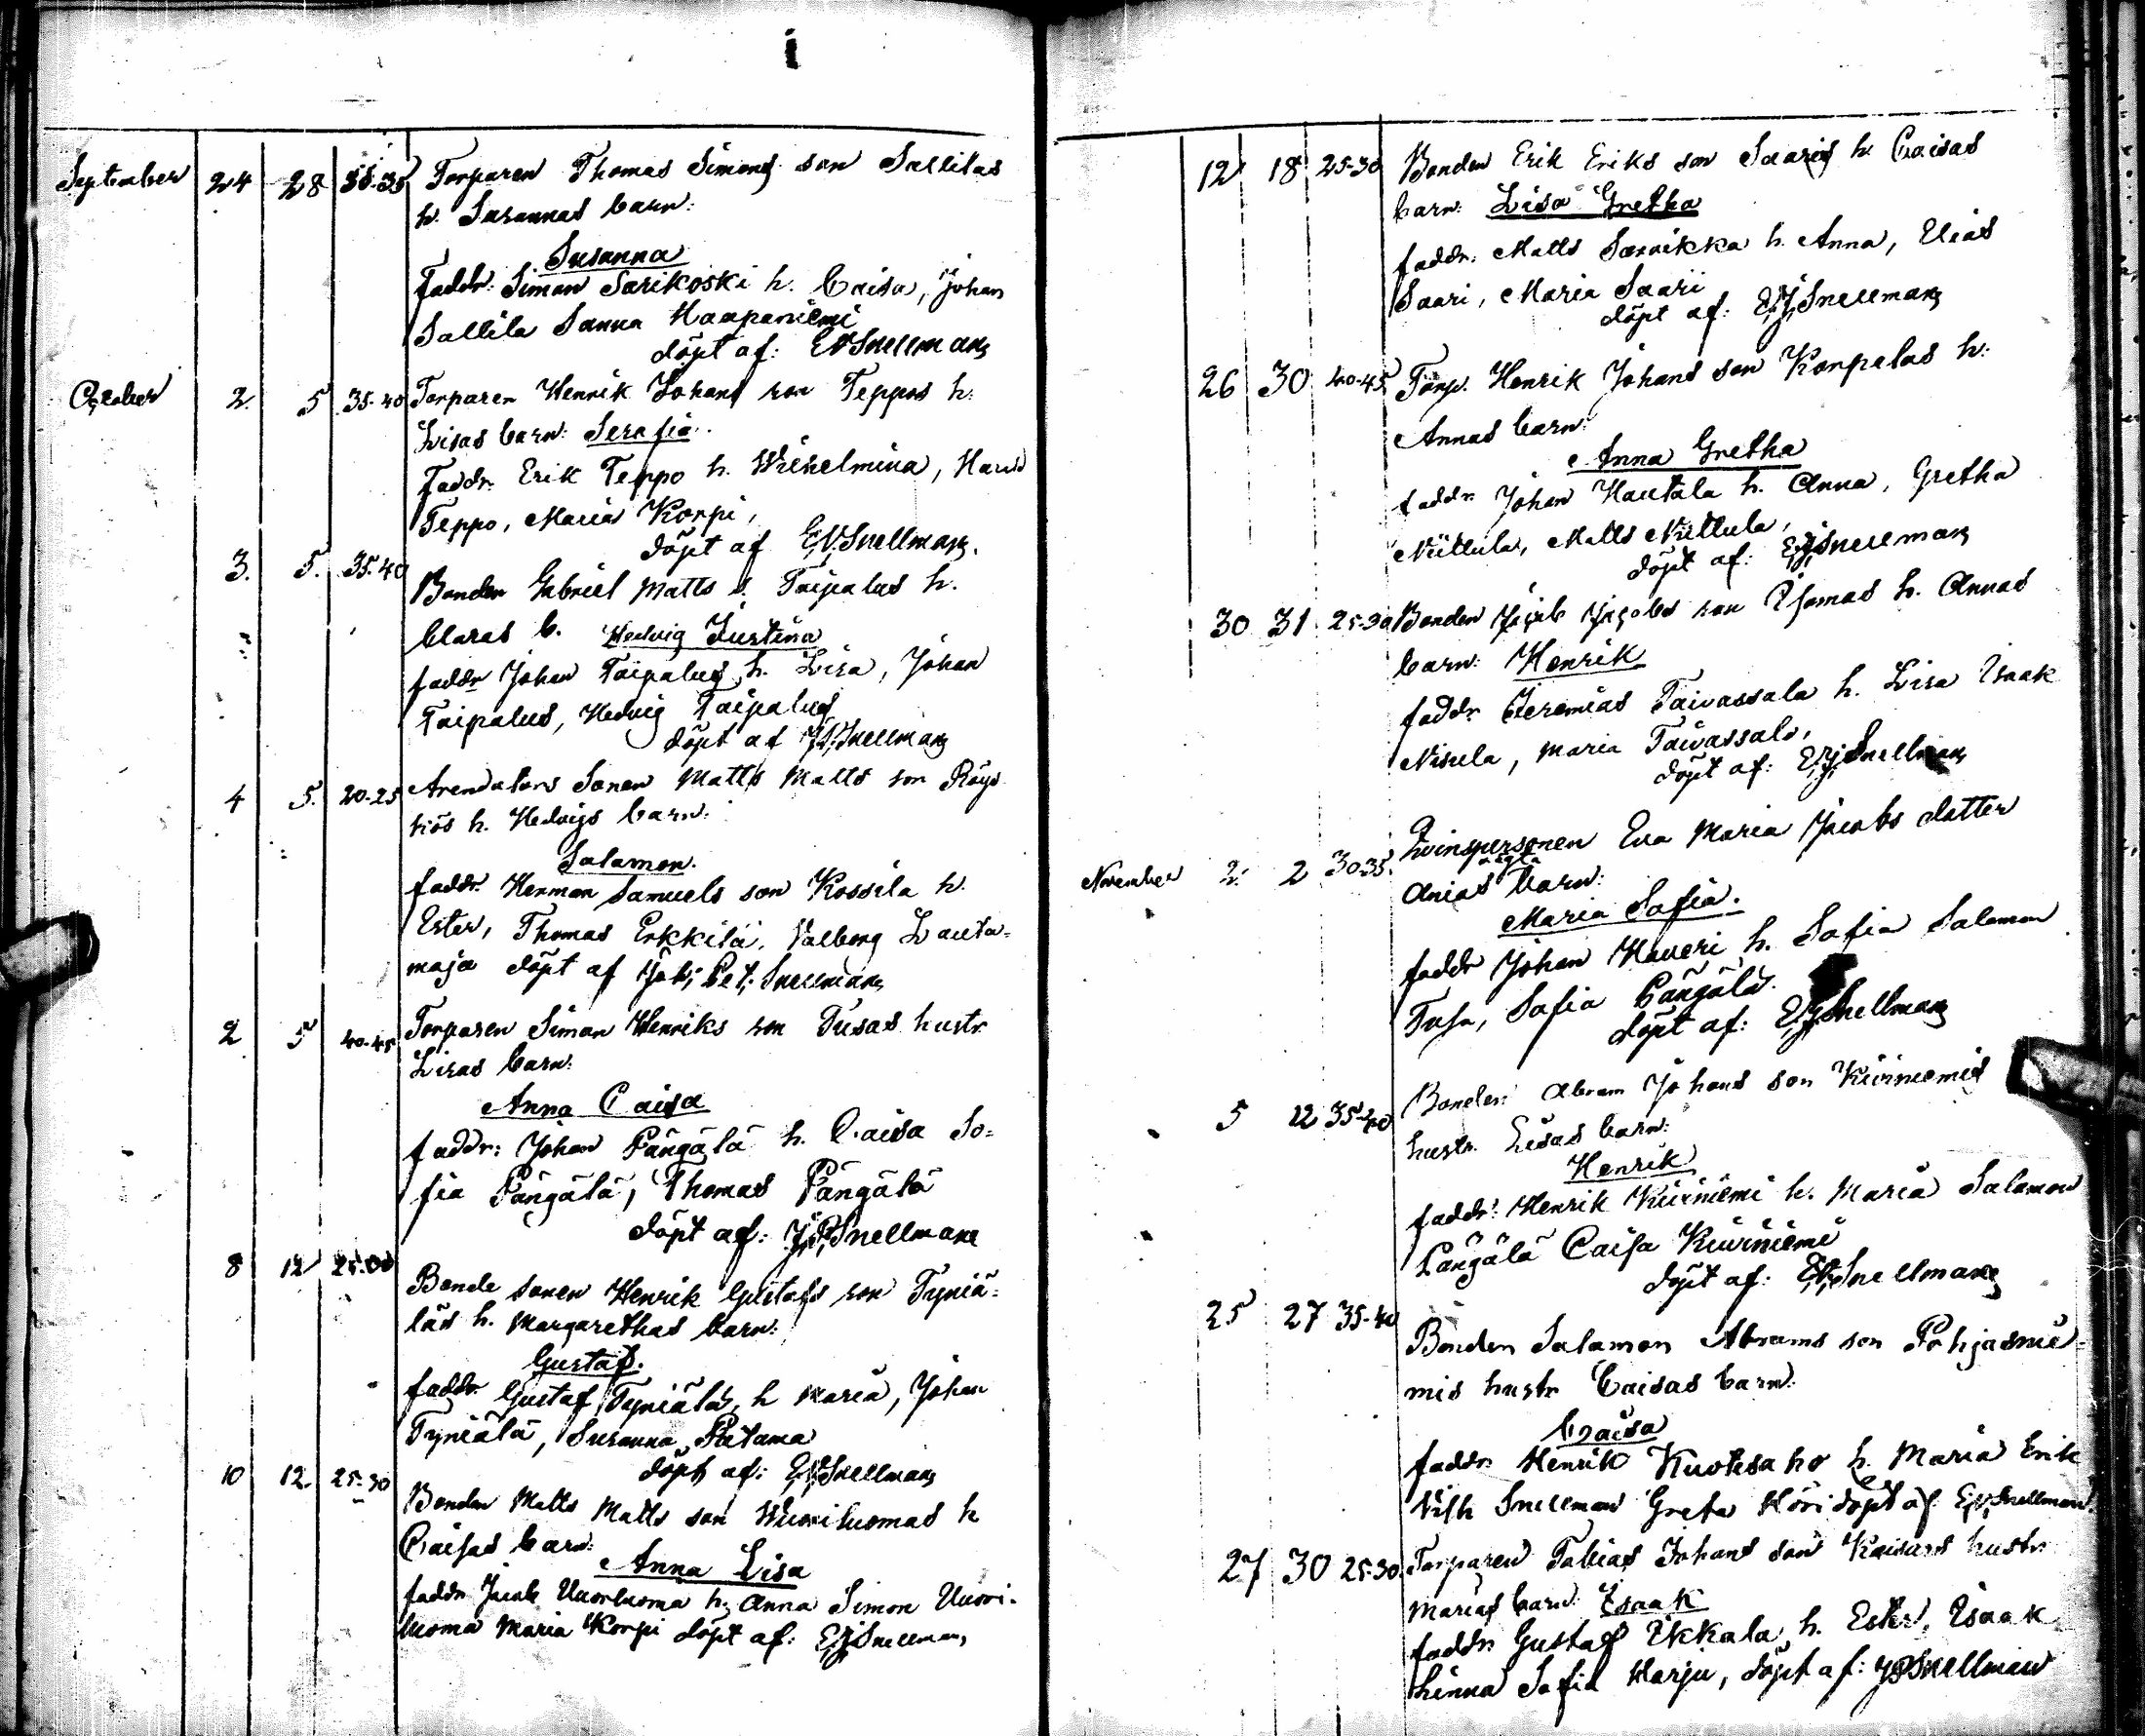 September 24 28 35-35 Torparen Thomas Simons son Sallilas
h. Susannas barn:
Susanna
Faddr: Simon Sarikoski h. Caisa, Johan
Sallila Sanna Haapaniemi
döpt af: Snellman
October 2. 5 35-40 Torparen Henrik Johans son Teppos h.
Lisas barn: Serafia
Faddr. Erik Teppo h. Wilhelmina,
Teppo, Maria Korpi,
döpt af Snellman.
3. 5. 35-40 Bonden Gabriel Matts s. Taipalus h.
Claras b. Hedvig Justina
faddr Johan Taipalus h. Lisa, Johan
Taipalus, Hedvig Taipalus
döpt af Snellman
4 5. 20-25 Arendators Sonen Matts Matts son Röys
kiös h. Hedvigs barn:
Salamon.
faddr. Herman Samuels son Kossila h.
Ester, Thomas Erkkilä, Valborg Lauta=
maja döpt af Job; Pet; Snellman
2 5 40-45 Torparen Simon Henriks son Tusas hustr
Lisas barn:
Anna Caisa
faddr: Johan Pängälä h. Caisa So=
fia Pängälä, Thomas Pängälä
döpt af: J.P. Snellman
8 12 Bonde sonen Henrik Gustafs son Tyniä=
läs h. Margarethas barn:
Gustaf.
faddr. Gustaf Tyniälä, h Maria, Johan
Tyniälä, Susanna Patama
döpt af: Snellman
10 12. 25-30 Bonden Matts Matts son Wuoriluomas h
Caisas barn:
Anna Lisa
faddr Jacob Vuorluoma h. Anna Simon Vuori-
luoma Maria Korpi döpt af: Snellman
12 18 25-30 Bonden Erik Eriks son Saaris h. Caisas
barn: Lisa Gretha
faddr: Matts Sarvikka h. Anna, Elias
Saari, Maria Saari
döpt af: Snellman
26 30 40-45 Torp. Henrik Johans son Korpelas h:
Annas barn:
Anna Gretha
faddr. Johan Hautala h. Anna, Gretha
Niittula, Matts Niittula,
döpt af: Snellman
30 31 25-30 Bonden Jacob Jacobs son h. Annas
barn: Henrik
faddr Jeremias Taivassala h. Lisa Isaak
Nisula, Maria Taivassalo,
döpt af: Snellman
November 2. 2 30-35. Qvinspersonen Eva Maria Jacobs dotter
ägta
barn:
Maria Sofia.
faddr Johan Haveri h. Sofia Salamon
Tusa, Sofia Pängälä.
döpt af: Snellman
5 12 35-40 Bonden Abram Johans son Kiviniemis
hustr. Lisas barn:
Henrik
faddr: Henrik Kiviniemi h. Maria Salamon
Pängälä Caisa Kiviniemi
döpt af: Snellman
25 27 35-40 Bonden Salamon Abrams son Pohjasnie=
mis hustr Caisas barn:
Caisa
faddr. Henrik Kuoksaho h. Maria Erik
Snellman Greta döpt af Snellman.
27 30 25-30 Torparen Tobias Johans son hustr
Marias barn: Isaak
faddr Gustaf Ikkala, h. Ester, Isaak
Linna Sofia Harju, döpt af: J.P. Snellman